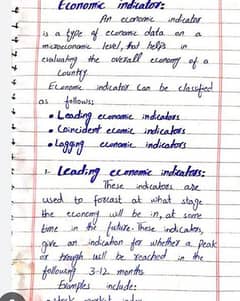 Economic indicator:
An economic indicator
is a type of economic data on a
macroeconomic level, that helps in
evaluating the overall economy of a
Country.
Economic indicator Can be classified
as follows:
• Leading economic indicators
• Coincident ecomic indicators
• Lagging economic indicators
1- Leading economic indicators:
These indicators are
used to forcast at what stage
the economy will be in, at some
time in the future. These indicators,
give an indication for whether a peak
or trough will be reached in the
following 3-12 months
Examples include:
• stock market index